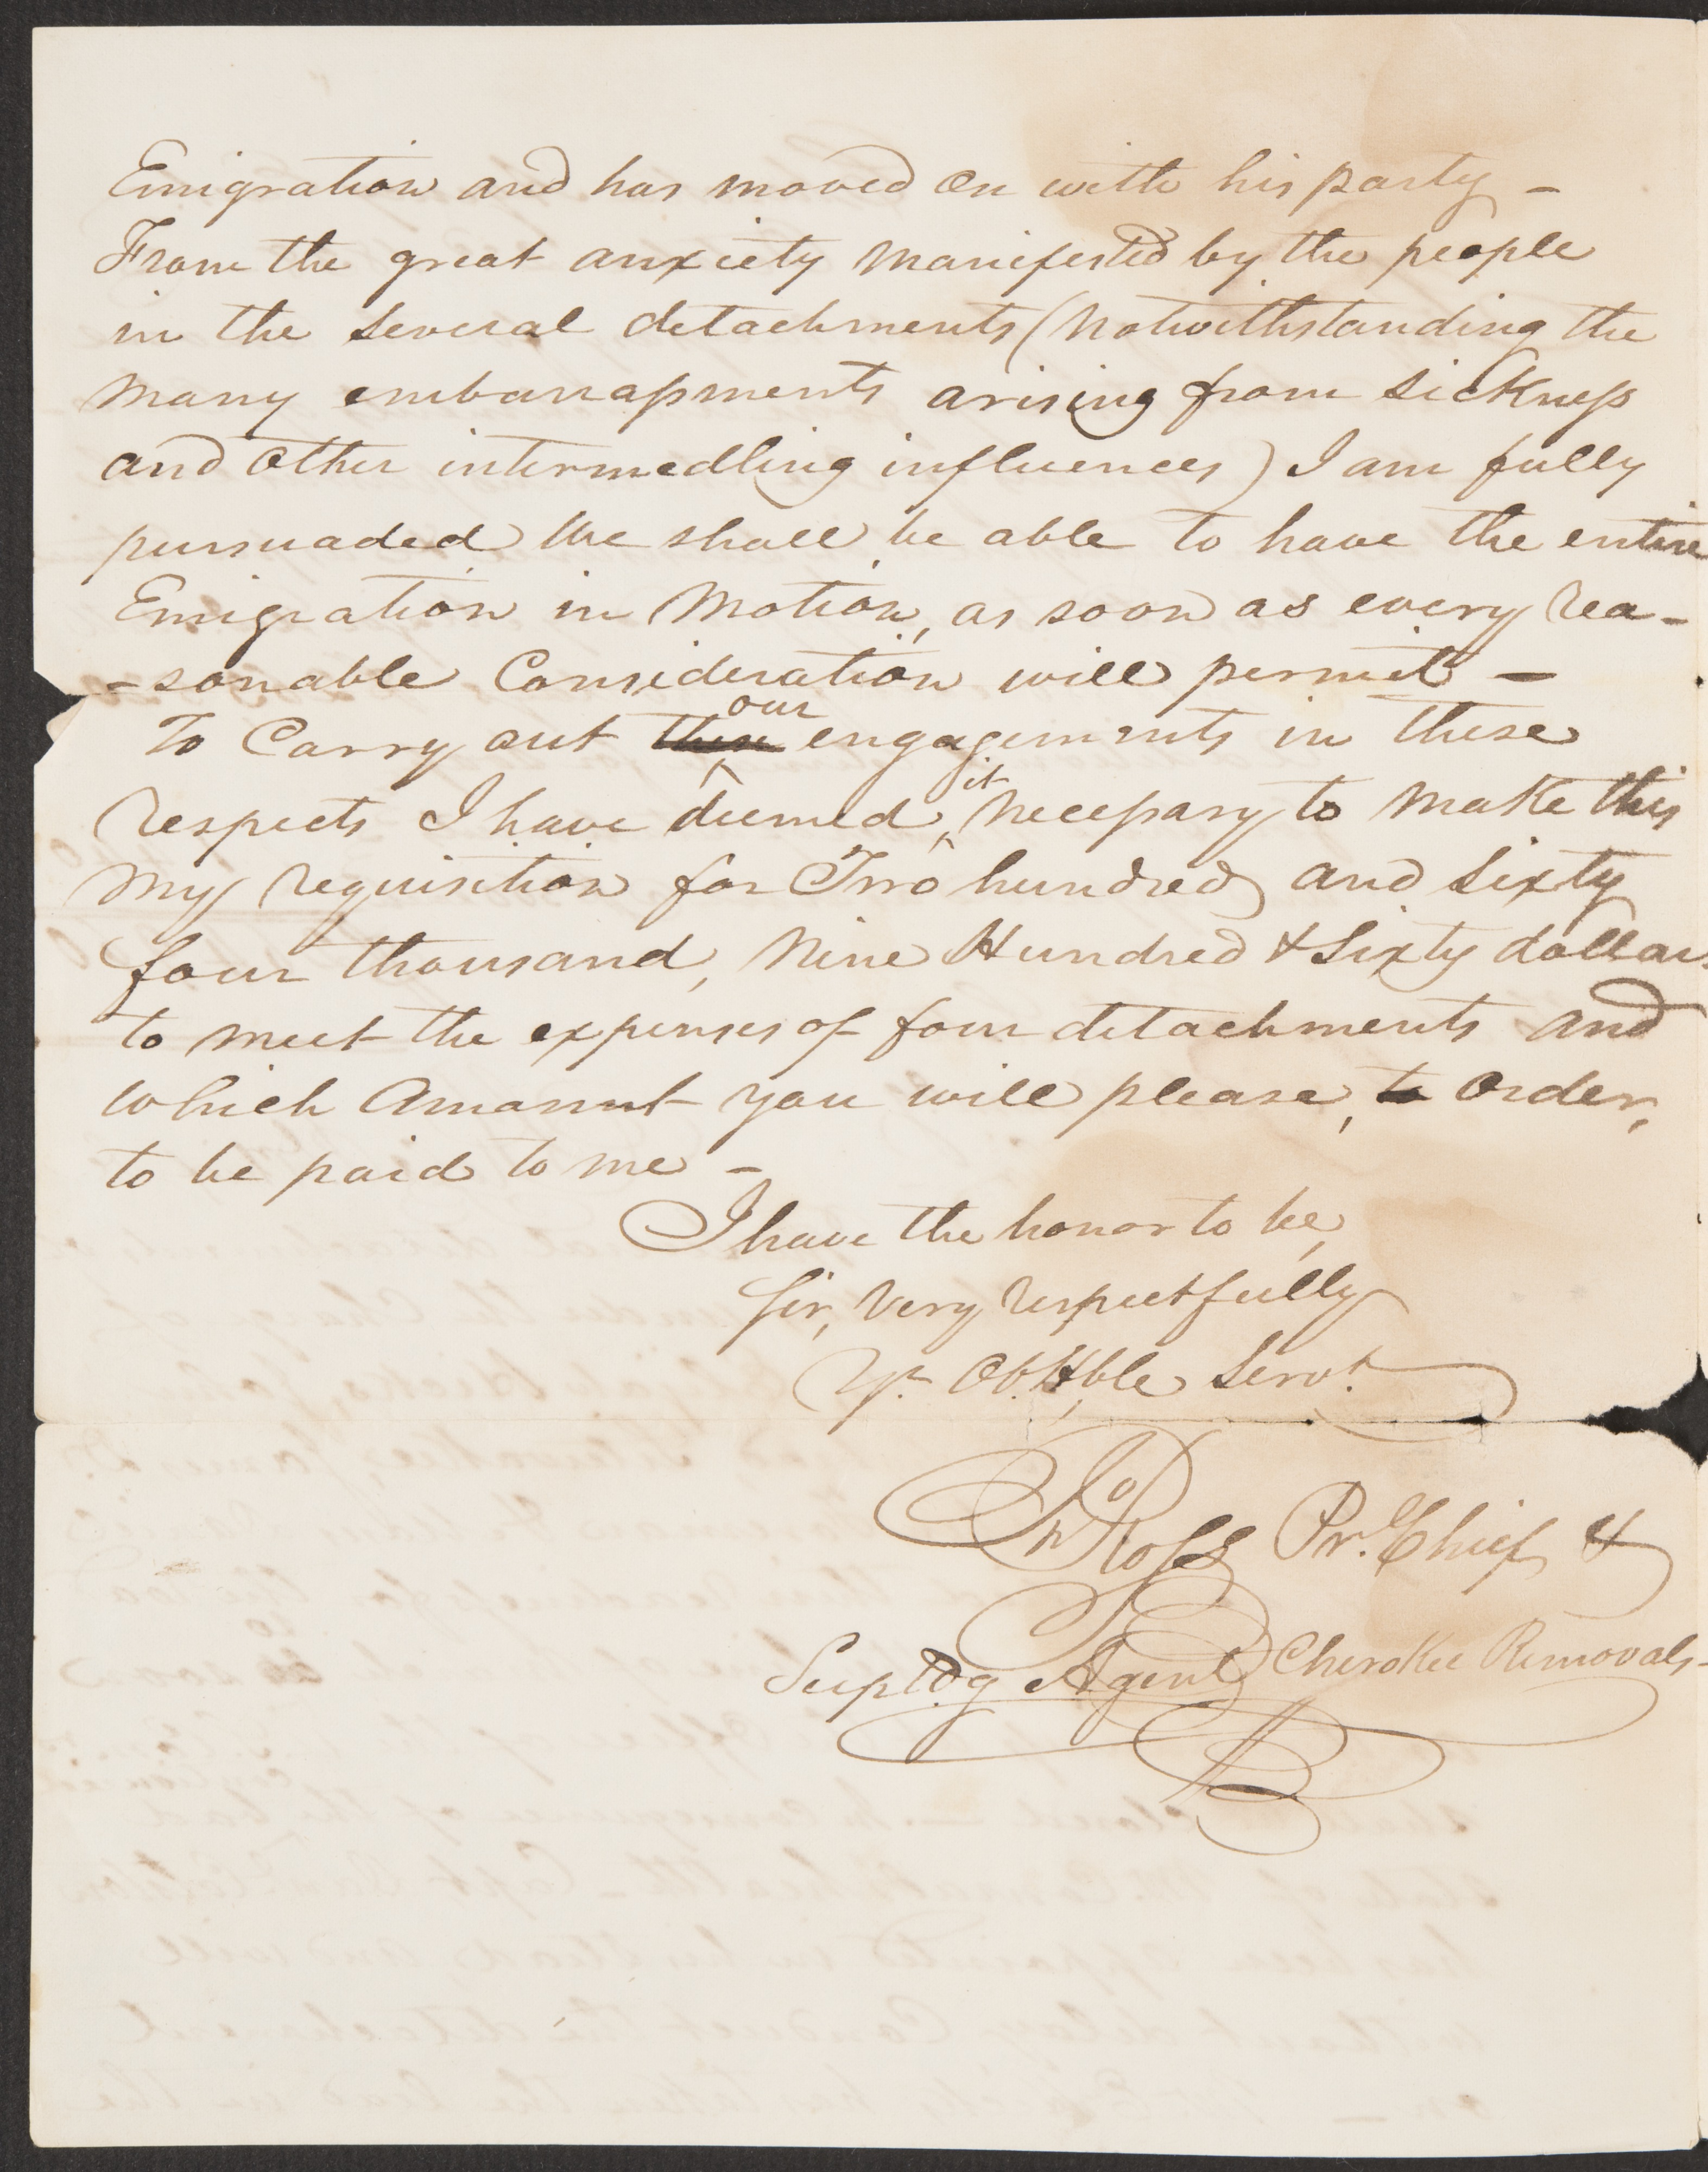 Emigration and has moved on with his party –
From the great anxiety manifested by the people
in the several detachments (notwithstanding the
many embarrassments arising from sickness
and other intermedling influences) I am fully
pursuaded we shall be able to have the entire
Emigration in motion, as soon as every rea-
-sonable Consideration will permit –
To Carry out our engagements in these
respects I have deemed it necessary to make this
my requisition for Two hundred and sixty
four thousand, Nine Hundred & Sixty dollars
to meet the expenses of four detachments and
which Amount you will please, to order,
to be paid to me –
I have the honor to be,
Sir, Very respectfully
Yr. Ob. Hble Servt.
Jno Ross Pr. Chief &
Suptdg Agent Cherokee Removals –